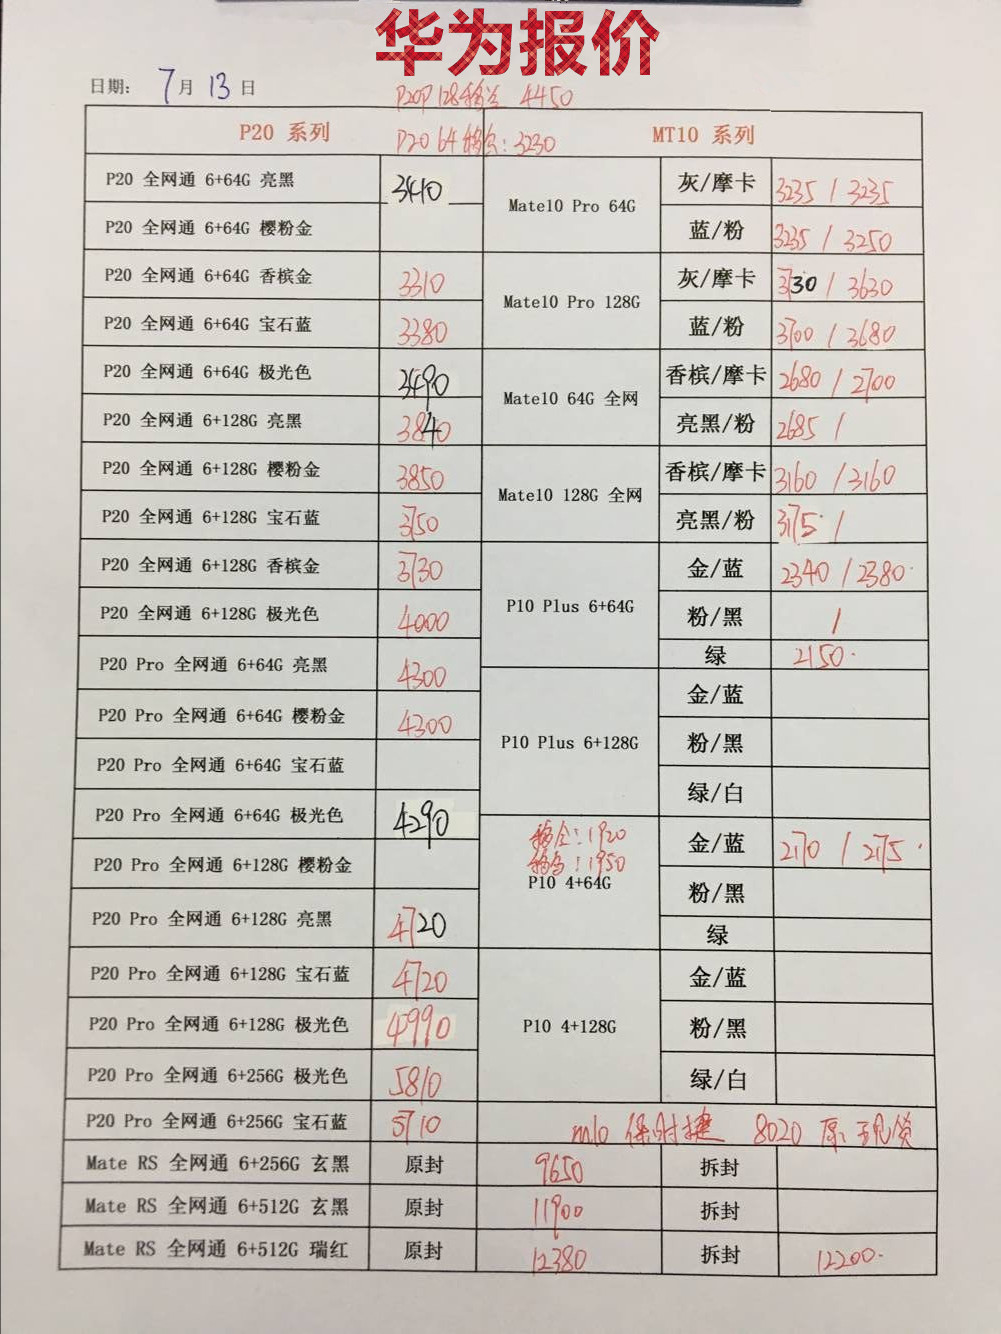 华为报价
日期： 7月 13日
P20P 128移 4450
P20 64移全：3230
P20 系列
MT10 系列
P20 全网通 6+64G 亮黑 3410
P20 全网通 6+64G 樱粉金
P20 全网通 6+64G 香槟金 3310
P20 全网通 6+64G 宝石蓝 3380
P20 全网通 6+64G 极光色 3490
P20 全网通 6+128G 亮黑 3840
P20 全网通 6+128G 樱粉金 3850
P20 全网通 6+128G 宝石蓝 3750
P20 全网通 6+128G 香槟金 3730
P20 全网通 6+128G 极光色 4000
P20 Pro 全网通 6+64G 亮黑 4300
P20 Pro 全网通 6+64G 樱粉金 4300
P20 Pro 全网通 6+64G 宝石蓝
P20 Pro 全网通 6+64G 极光色 4290
P20 Pro 全网通 6+128G 樱粉金
P20 Pro 全网通 6+128G 亮黑 4720
P20 Pro 全网通 6+128G 宝石蓝 4720
P20 Pro 全网通 6+128G 极光色 4990
P20 Pro 全网通 6+256G 极光色 5810
P20 Pro 全网通 6+256G 宝石蓝 5710
Mate10 Pro 64G
灰/摩卡 3235 / 3235
蓝/粉 3235 / 3250
Mate10 Pro 128G
灰/摩卡 3730 / 3630
蓝/粉 3700 / 3680
Mate10 64G 全网
香槟/摩卡 2680 / 2700
亮黑/粉 2685 /
Mate10 128G 全网
香槟/摩卡 3160 / 3160
亮黑/粉 3175 /
P10 Plus 6+64G
金/蓝 2340 / 2380
粉/黑 /
绿 2150
P10 Plus 6+128G
金/蓝
粉/黑
绿/白
移全：1920
移：1950
P10 4+64G
金/蓝 2170 / 2175
粉/黑
绿
P10 4+128G
金/蓝
粉/黑
绿/白
m10 保时捷 8020 原：现货
Mate RS 全网通 6+256G 玄黑 原封 9650 拆封
Mate RS 全网通 6+512G 玄黑 原封 11900 拆封
Mate RS 全网通 6+512G 瑞红 原封 12380 拆封 12200